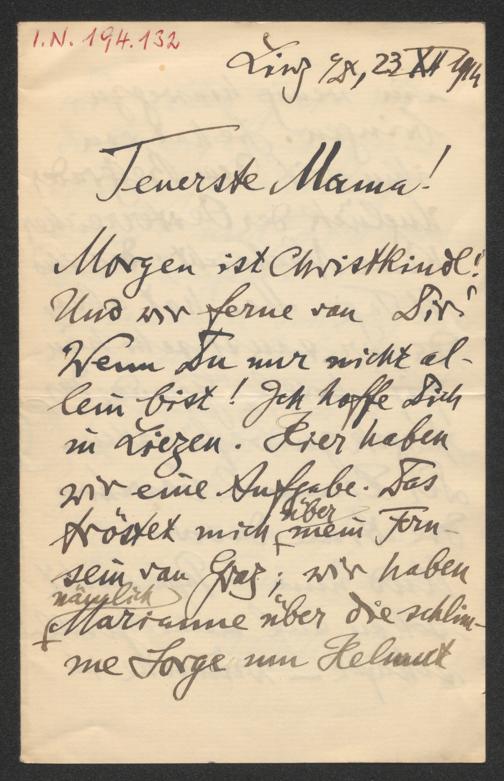 I.N. 194.132
Linz a/D, 23 XII 1914
Teuerste Mama!
Morgen ist Christkindl!
Und wir ferne von Dir!
Wenn Du nur nicht al-
lein bist! Ich hoffe Dich
in Liezen. Hier haben
wir eine Aufgabe. Das
tröstet mich über mein Fern-
sein von Graz; wir haben
nämlich
Marianne über die schlim-
me Sorge um Helmut